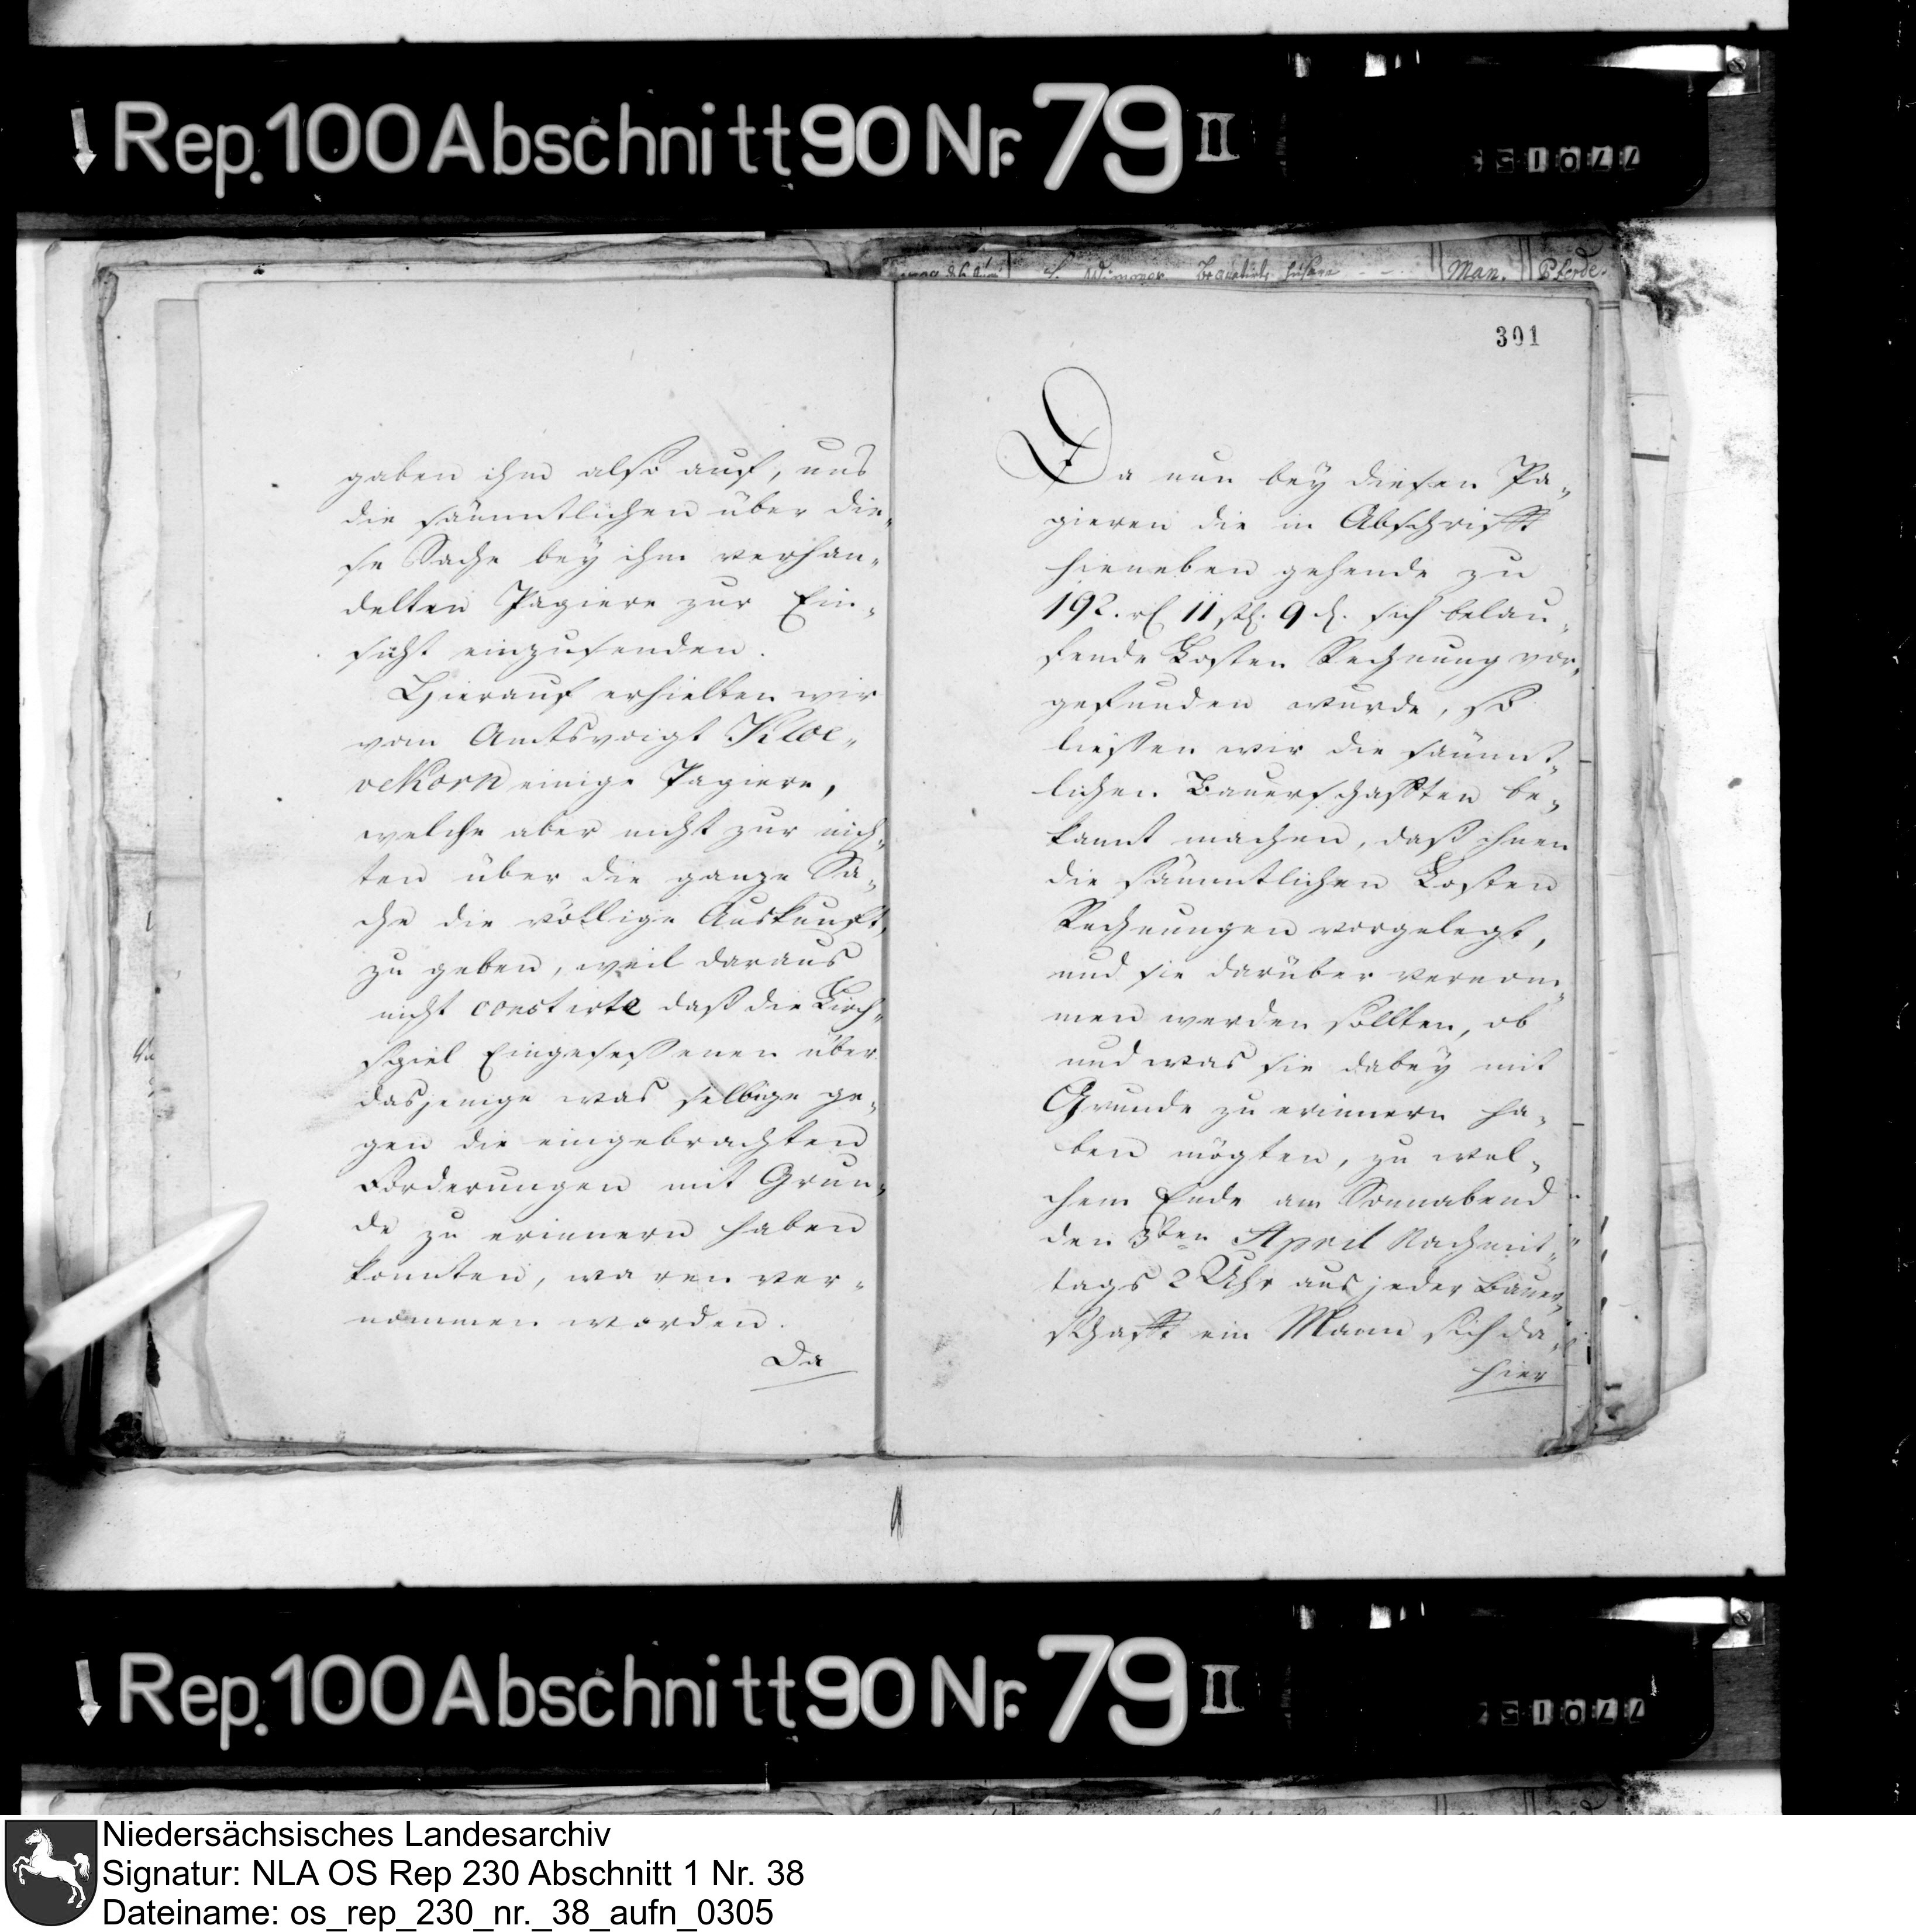 Rep. 100 Abschnitt 90 Nr. 79 II
Man. Pferde.
gaben ihm also auf, uns
die sämmtlichen über die-
se Sache bey ihm verhan-
delten Papiere zur Ein-
sicht einzusenden.
Hierauf erhielten wir
vom Amtsvoigt Kloe-
vekorn einige Papiere,
welche aber nicht zureich-
ten über die ganze Sa-
che die völlige Auskunft
zu geben, weil daraus
nicht constirte daß die Kirch-
spiel Eingesessenen über
dasjenige was selbige ge-
gen die eingebrachten
Forderungen mit Grun-
de zu erinnern haben
konnten, waren ver-
nommen worden.
Da
301
Da nun bey diesen Pa-
pieren die in Abschrifft
hieneben gehende zu
192. rt 11 sch. 9 d. sich belau-
fende Kosten Rechnung vor-
gefunden wurde, so
liessen wir die sämmt-
lichen Bauerschafften be-
kannt machen, daß ihnen
die sämmtlichen Kosten
Rechnungen vorgelegt,
und sie darüber vernom-
men werden sollten, ob
und was sie dabey mit
Grunde zu erinnern ha-
ben mögten, zu wel-
chem Ende am Sonnabend
den 3ten April Nachmit-
tags 2 Uhr aus jeder Bauer-
schafft ein Mann sich da-
hier
Rep. 100 Abschnitt 90 Nr. 79 II
Niedersächsisches Landesarchiv
Signatur: NLA OS Rep 230 Abschnitt 1 Nr. 38
Dateiname: os_rep_230_nr._38_aufn_0305